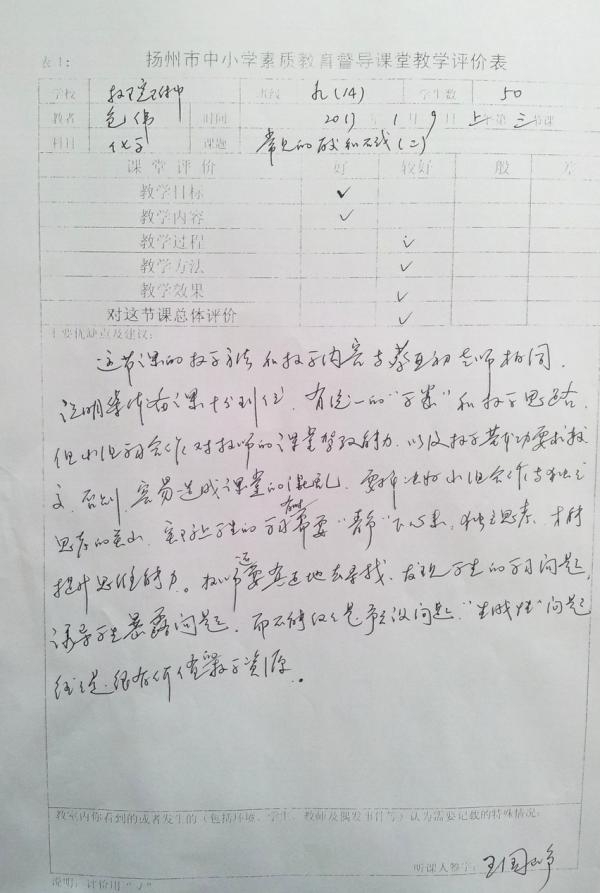 表1: 扬州市中小学素质教育督导课堂教学评价表
学校 班级 九(14) 学生数 50
教者 包伟 时间 年 1月9日 上午第三节课
科目 化学 课题 常见的酸和碱(二)
课堂评价 好 较好 一般 差
教学目标 ✓
教学内容 ✓
教学过程 ✓
教学方法 ✓
教学效果 ✓
对这节课总体评价 ✓
主要优缺点及建议:
这节课的教学方法和教学内容与蔡亚初老师相同,
说明集体备课十分到位,有统一的“学案”和教学思路,
但小组合作对教师的课堂驾驭能力,以及教学基本功要求较
高,否则,容易造成课堂的混乱,要解决好小组合作与独立
思考的 学生的学习有时需要“静”下心来,独立思考,才能
提升思维能力。教师还要真正地去寻找、发现学生的学习问题,
诱导学生暴露问题,而不能仅仅是预设问题,“生成性”问题
往往是很有价值的教学资源。
教室内你看到的或者发生的(包括环境、学生、教师及偶发事件等)认为需要记载的特殊情况:
听课人签字: 王国峥
说明: 评价用“√”